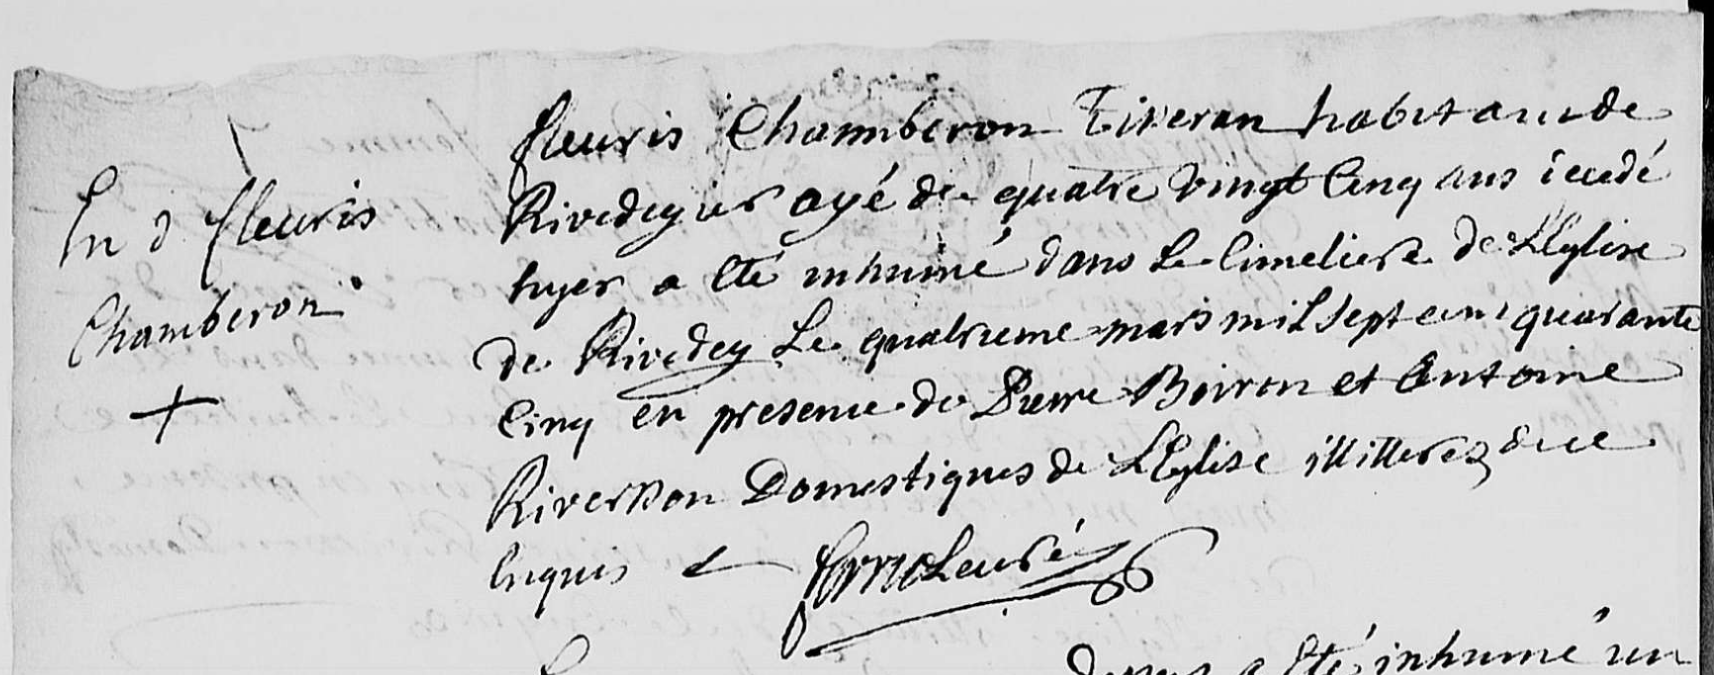 En d fleuris
Chamberon
+
fleuris Chamberon Tireran habitan de
Rivedegier ayé de quatre vingt Cinq ans decedé
hyer a eté inhumé dans Le Cimeliere de LEglise
de Rivedey Le quatrieme mars mil sept cent quarante
Cinq en presence de Pierre Boiron et Antoine
Riverson Domestiques de LEglise illitterez de ce
Enquis
curé
a eté inhumé un